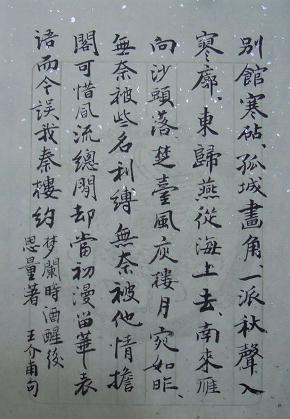 別館寒砧、孤城畫角、一派秋聲入
寥廓、東歸燕從海上去、南來雁
向沙頭落、楚臺風庾樓月宛如昨、
無奈被些名利縛無奈被他情擔
閣可惜風流總閒却當初漫留華表
語而今誤我秦樓約
梦闌時酒醒後
思量著 王介甫句